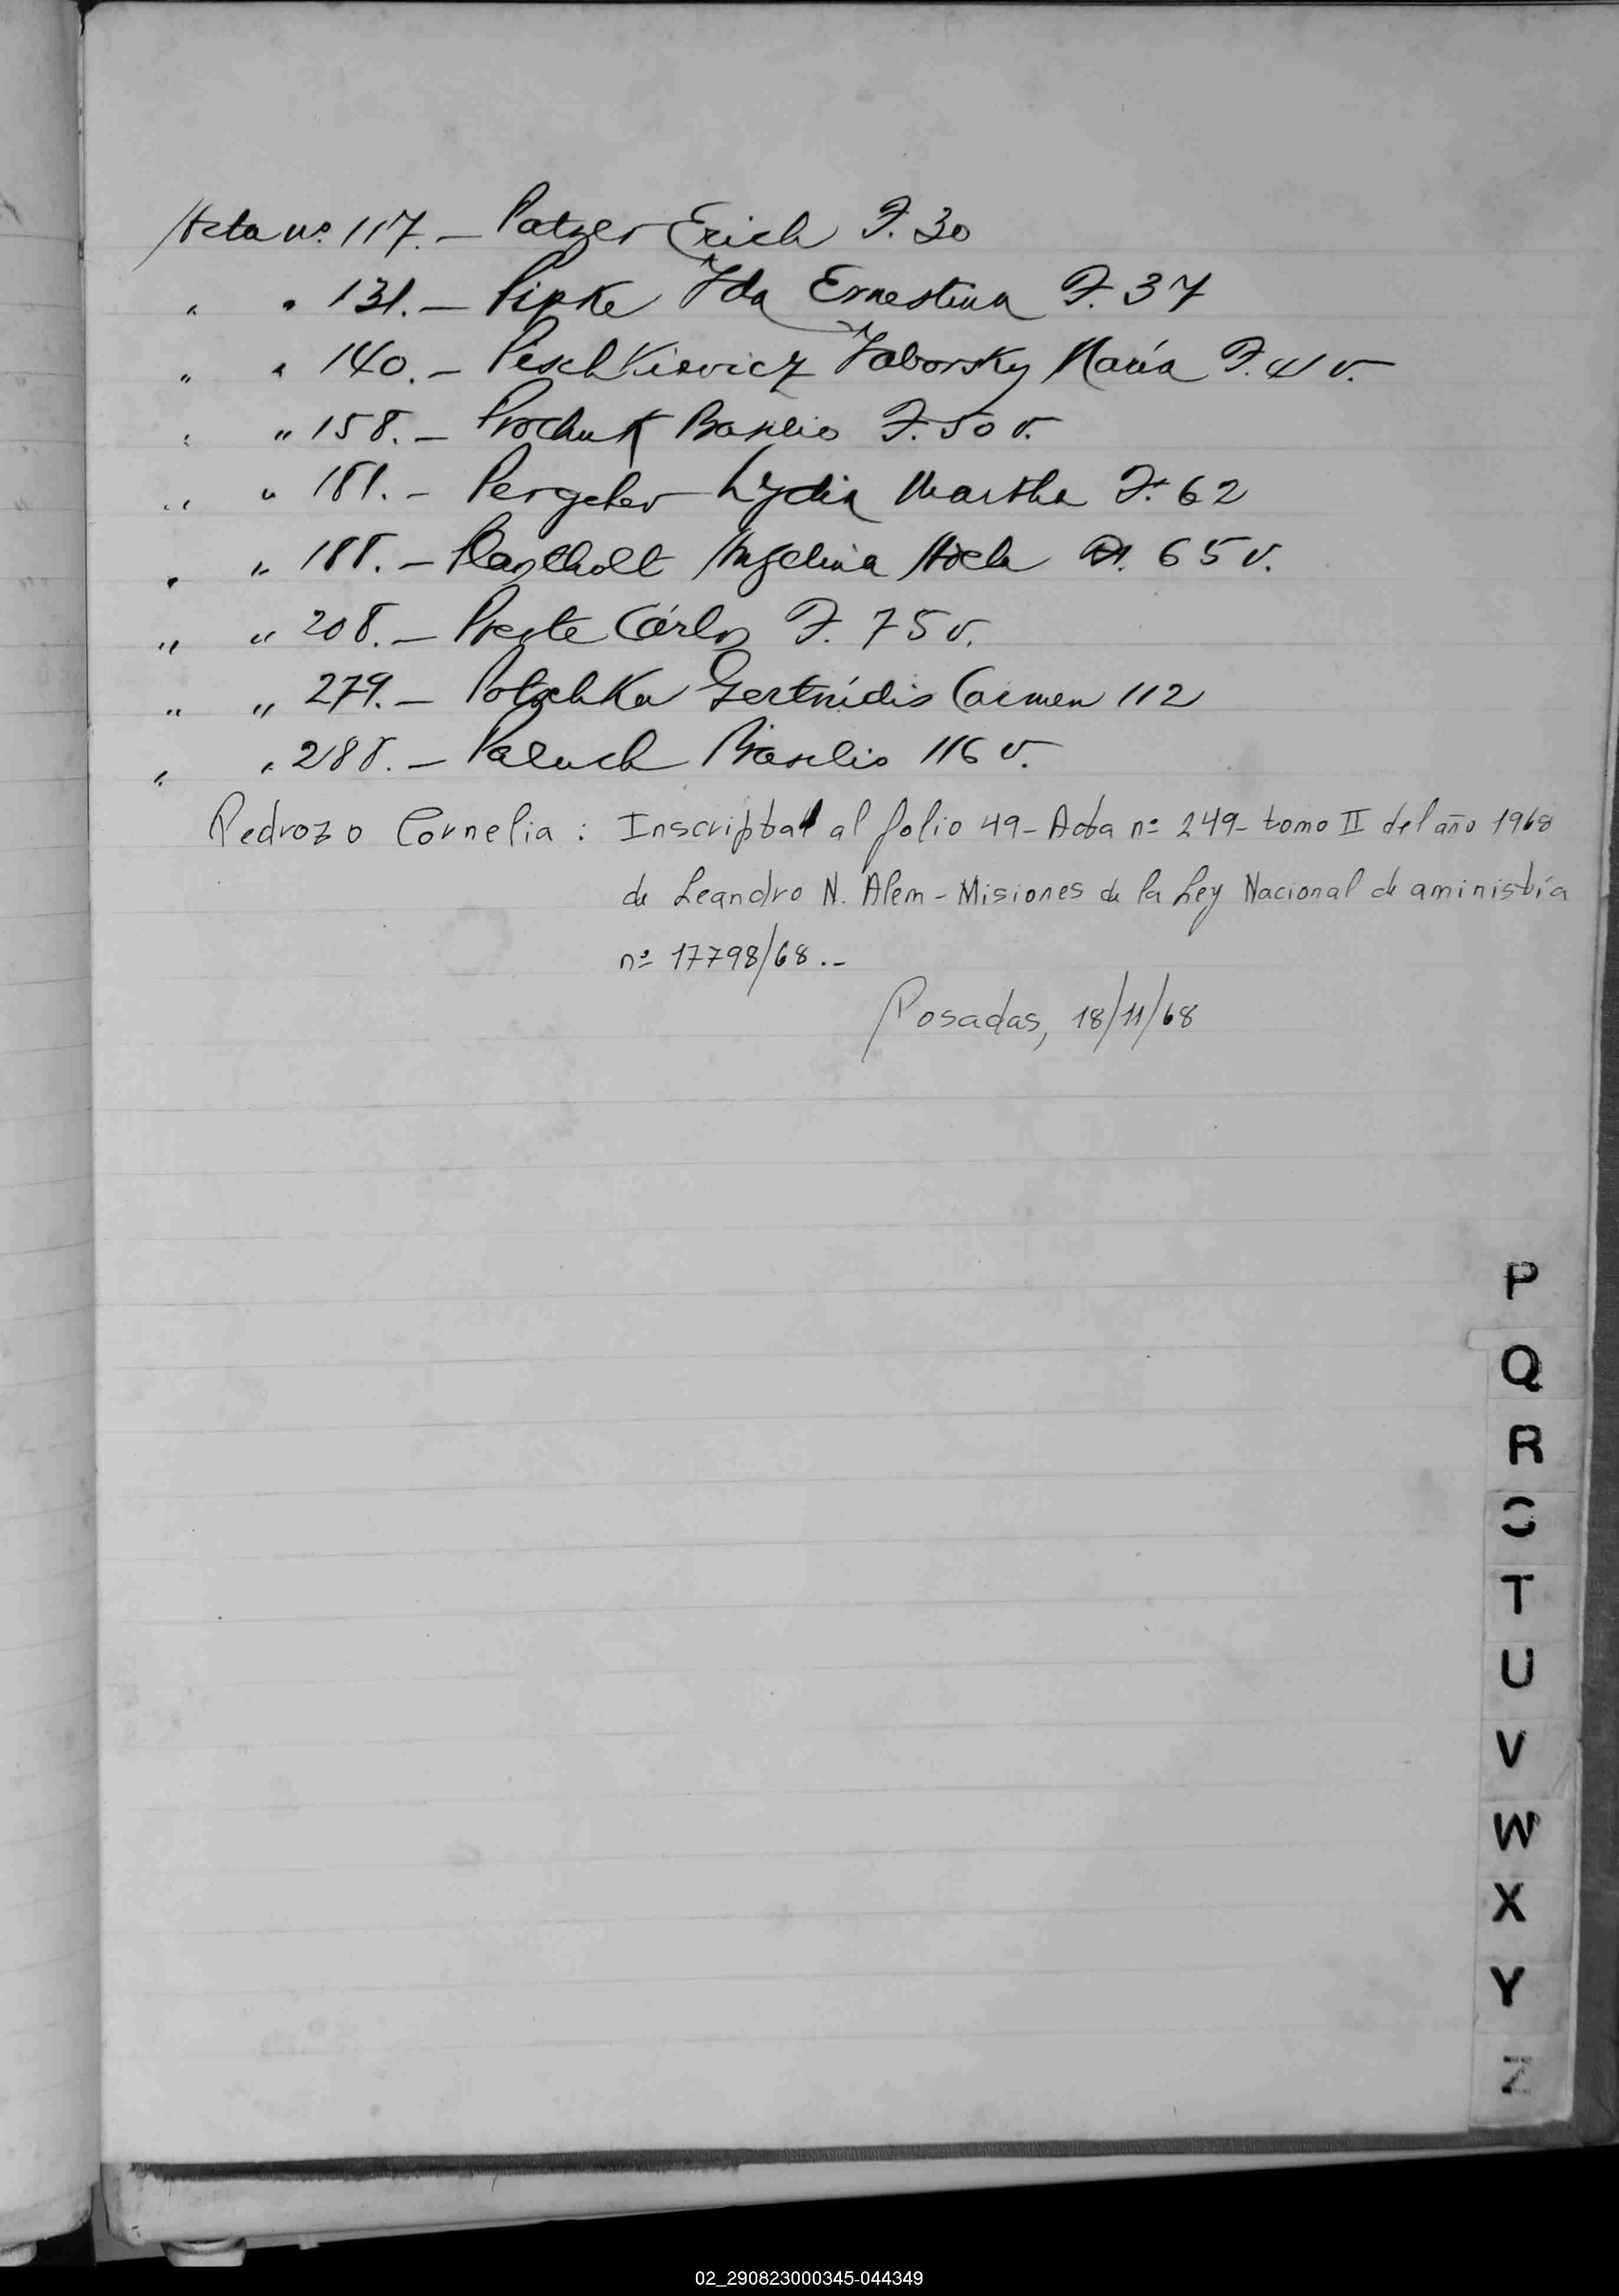 Acta nº 117.- Patzer Erich F. 30
" " 131.- Pipke Ida Ernestina F. 37
" " 140.- Peschkievicz Jaborsky María F. 41 v.
" " 158.- Prochuk Basilio F. 50 v.
" " 181.- Pergher Lydia Martha F. 62
" " 188.- Angelina 65 v.
" " 208.- Preste Cárlos F. 75 v.
" " 279.- Potschka Gertrúdis Carmen 112
" " 288.- Paluch Basilio 116 v.
Pedrozo Cornelia : Inscripta al folio 49- Acta nº 249- tomo II del año 1968
de Leandro N. Alem - Misiones de la Ley Nacional de aministía
nº 17798/68.-
Posadas, 18/11/68
P
Q
R
S
T
U
V
W
X
Y
Z
02_290823000345-044349